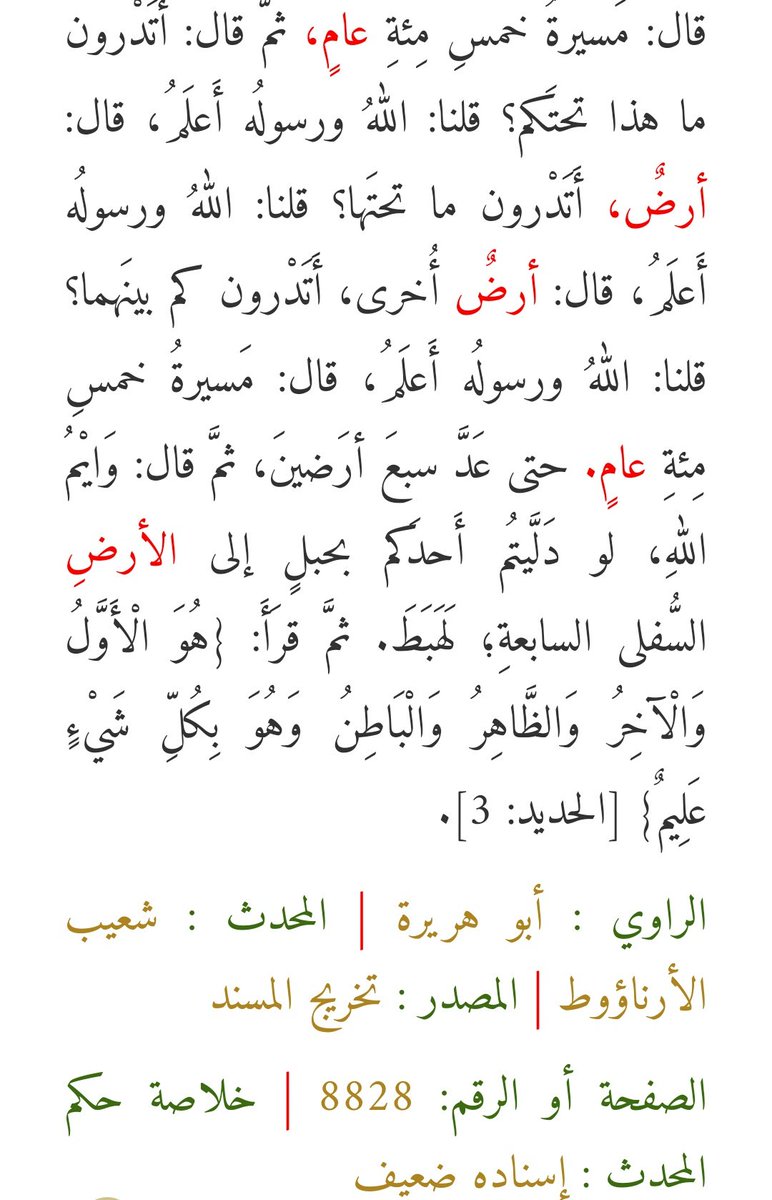 قال: مَسيرةُ خمسِ مِئةِ عامٍ، ثمَّ قال: أتَدْرون
ما هذا تحتَكم؟ قلنا: اللهُ ورسولُه أعلَمُ، قال:
أرضٌ، أتَدْرون ما تحتَها؟ قلنا: اللهُ ورسولُه
أَعلَمُ، قال: أرضٌ أُخرى، أَتَدْرون كم بينَهما؟
قلنا: اللهُ ورسولُه أَعلَمُ، قال: مَسيرةُ خمسِ
مِئةِ عامٍ. حتى عَدَّ سبعَ أرَضينَ، ثمَّ قال: وَايْمُ
اللهِ، لو دَلَّيتُم أَحدَكم بحبلٍ إلى الأرضِ
السُّفلى السابعةِ؛ لَهَبَطَ. ثمَّ قرَأَ: {هُوَ الْأَوَّلُ
وَالْآخِرُ وَالظَّاهِرُ وَالْبَاطِنُ وَهُوَ بِكُلِّ شَيْءٍ
عَلِيمٌ} [الحديد: 3].
الراوي : أبو هريرة | المحدث : شعيب
الأرناؤوط | المصدر : تخريج المسند
الصفحة أو الرقم: 8828 | خلاصة حكم
المحدث : إسناده ضعيف